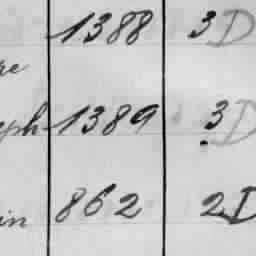 1388 3D
re
eph 1389 3D
in 862 2D